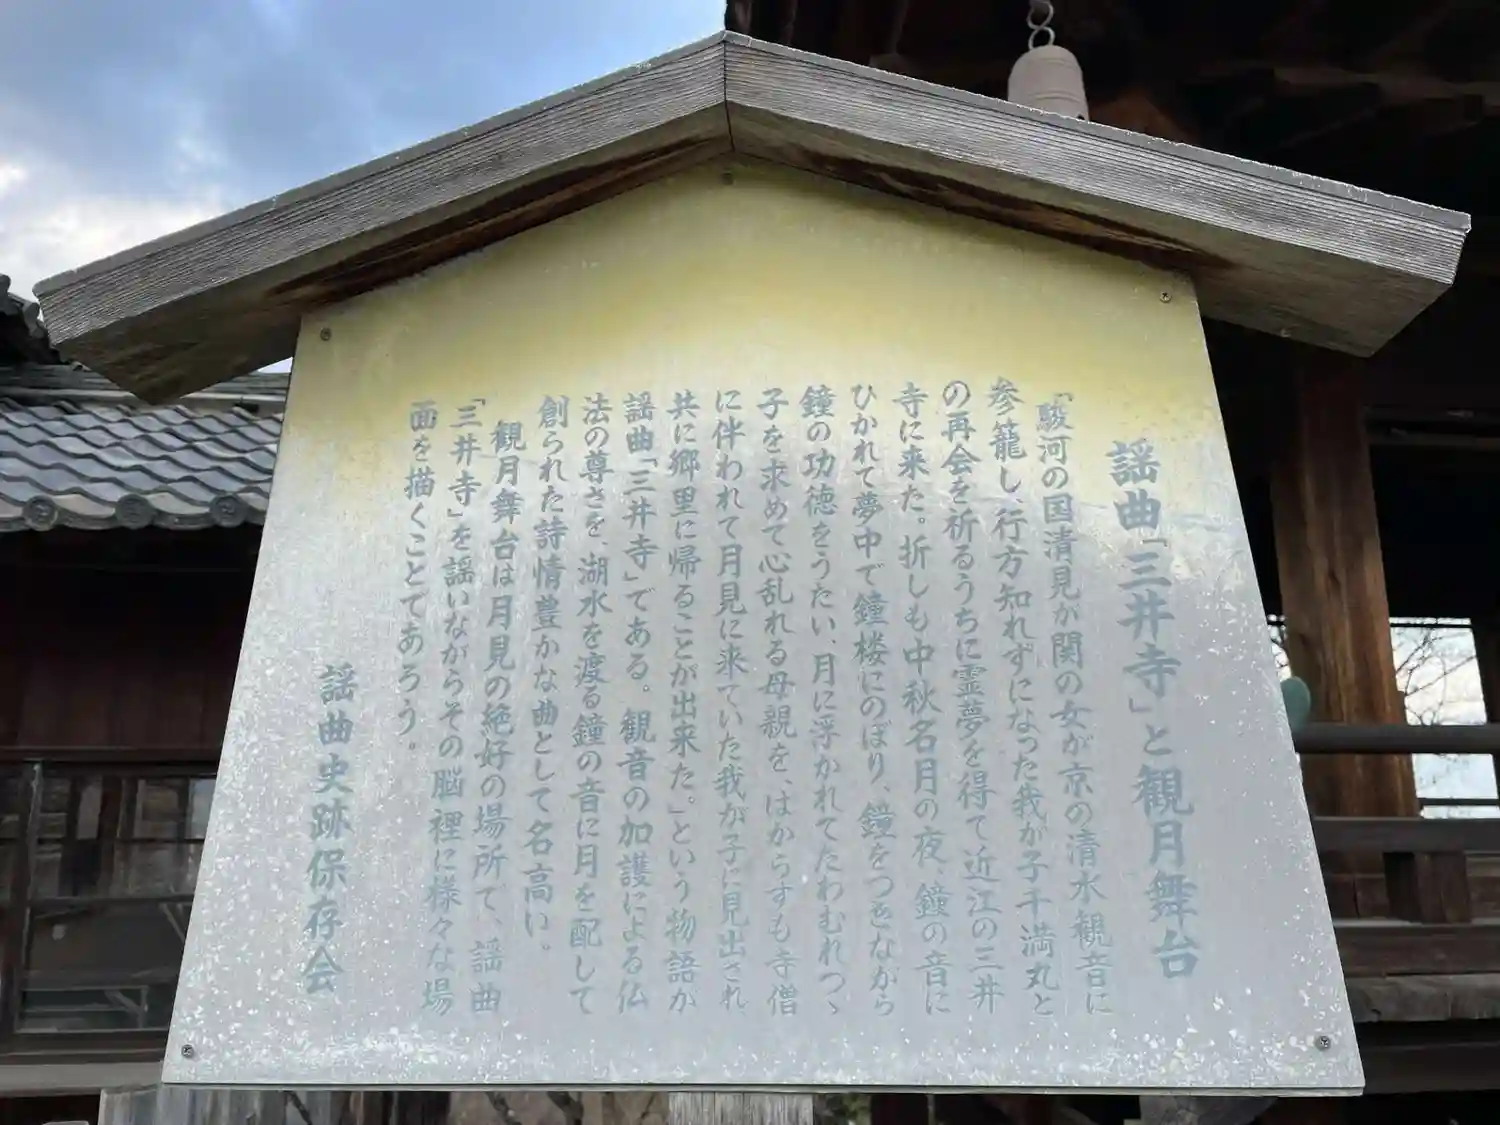 謡曲「三井寺」と観月舞台
「駿河の国清見が関の女が京の清水観音に
参籠し、行方知れずになった我が子千満丸と
の再会を祈るうちに霊夢を得て近江の三井
寺に来た。折しも中秋名月の夜、鐘の音に
ひかれて夢中で鐘楼にのぼり、鐘をつきながら
鐘の功徳をうたい、月に浮かれてたわむれつゝ
子を求めて心乱れる母親を、はからずも寺僧
に伴われて月見に来ていた我が子に見出され
共に郷里に帰ることが出来た。」という物語が
謡曲「三井寺」である。観音の加護による仏
法の尊さを、湖水を渡る鐘の音に月を配して
創られた詩情豊かな曲として名高い。
観月舞台は月見の絶好の場所で、謡曲
「三井寺」を謡いながらその脳裡に様々な場
面を描くことであろう。
謡曲史跡保存会